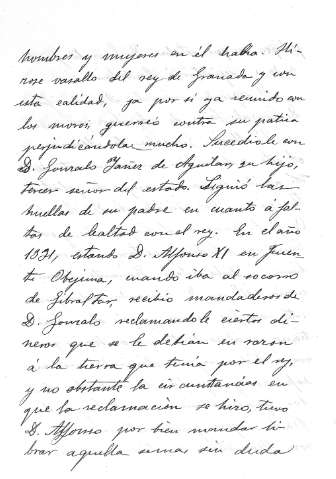 hombres y mujeres en él había. Hí-
zose vasallo del rey de Granada y con
esta calidad, ya por si ya reunido con
los moros, guerreó contra su patria
perjudicándola mucho. Sucedióle con
D. Gonzalo Yañez de Aguilar, su hijo,
tercer señor del estado. Siguió las
huellas de su padre en cuanto á fal-
tas de lealtad con el rey. En el año
1331, estando D. Alfonso XI en Fuen-
te Obejuna, cuando iba al socorro
de Gibraltar, recibio mandaderos de
D. Gonzalo reclamandole ciertos di-
neros que se le debian en razon
á la tierra que tenia por el rey,
y no obstante la circunstancias en
que la reclamación se hizo, tuvo
D. Alfonso por bien mandar li-
brar aquella suma, sin duda